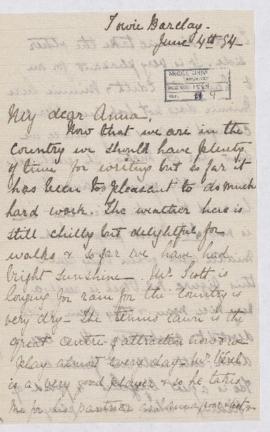 Towie Barclay.
June 4th 94.
My dear Anna,
Now that we are in the
country we should have plenty
of time for writing but so far it
has been too pleasant to do much
hard work. The weather here is
still chilly but delightful for
walks & so far we have had
bright sunshine. Mr. Scott is
longing for rain for the country is
very dry. The tennis lawn is the
great centre of attraction now we
play almost every day. Mr.
is a very good player & so he takes
me for his partner